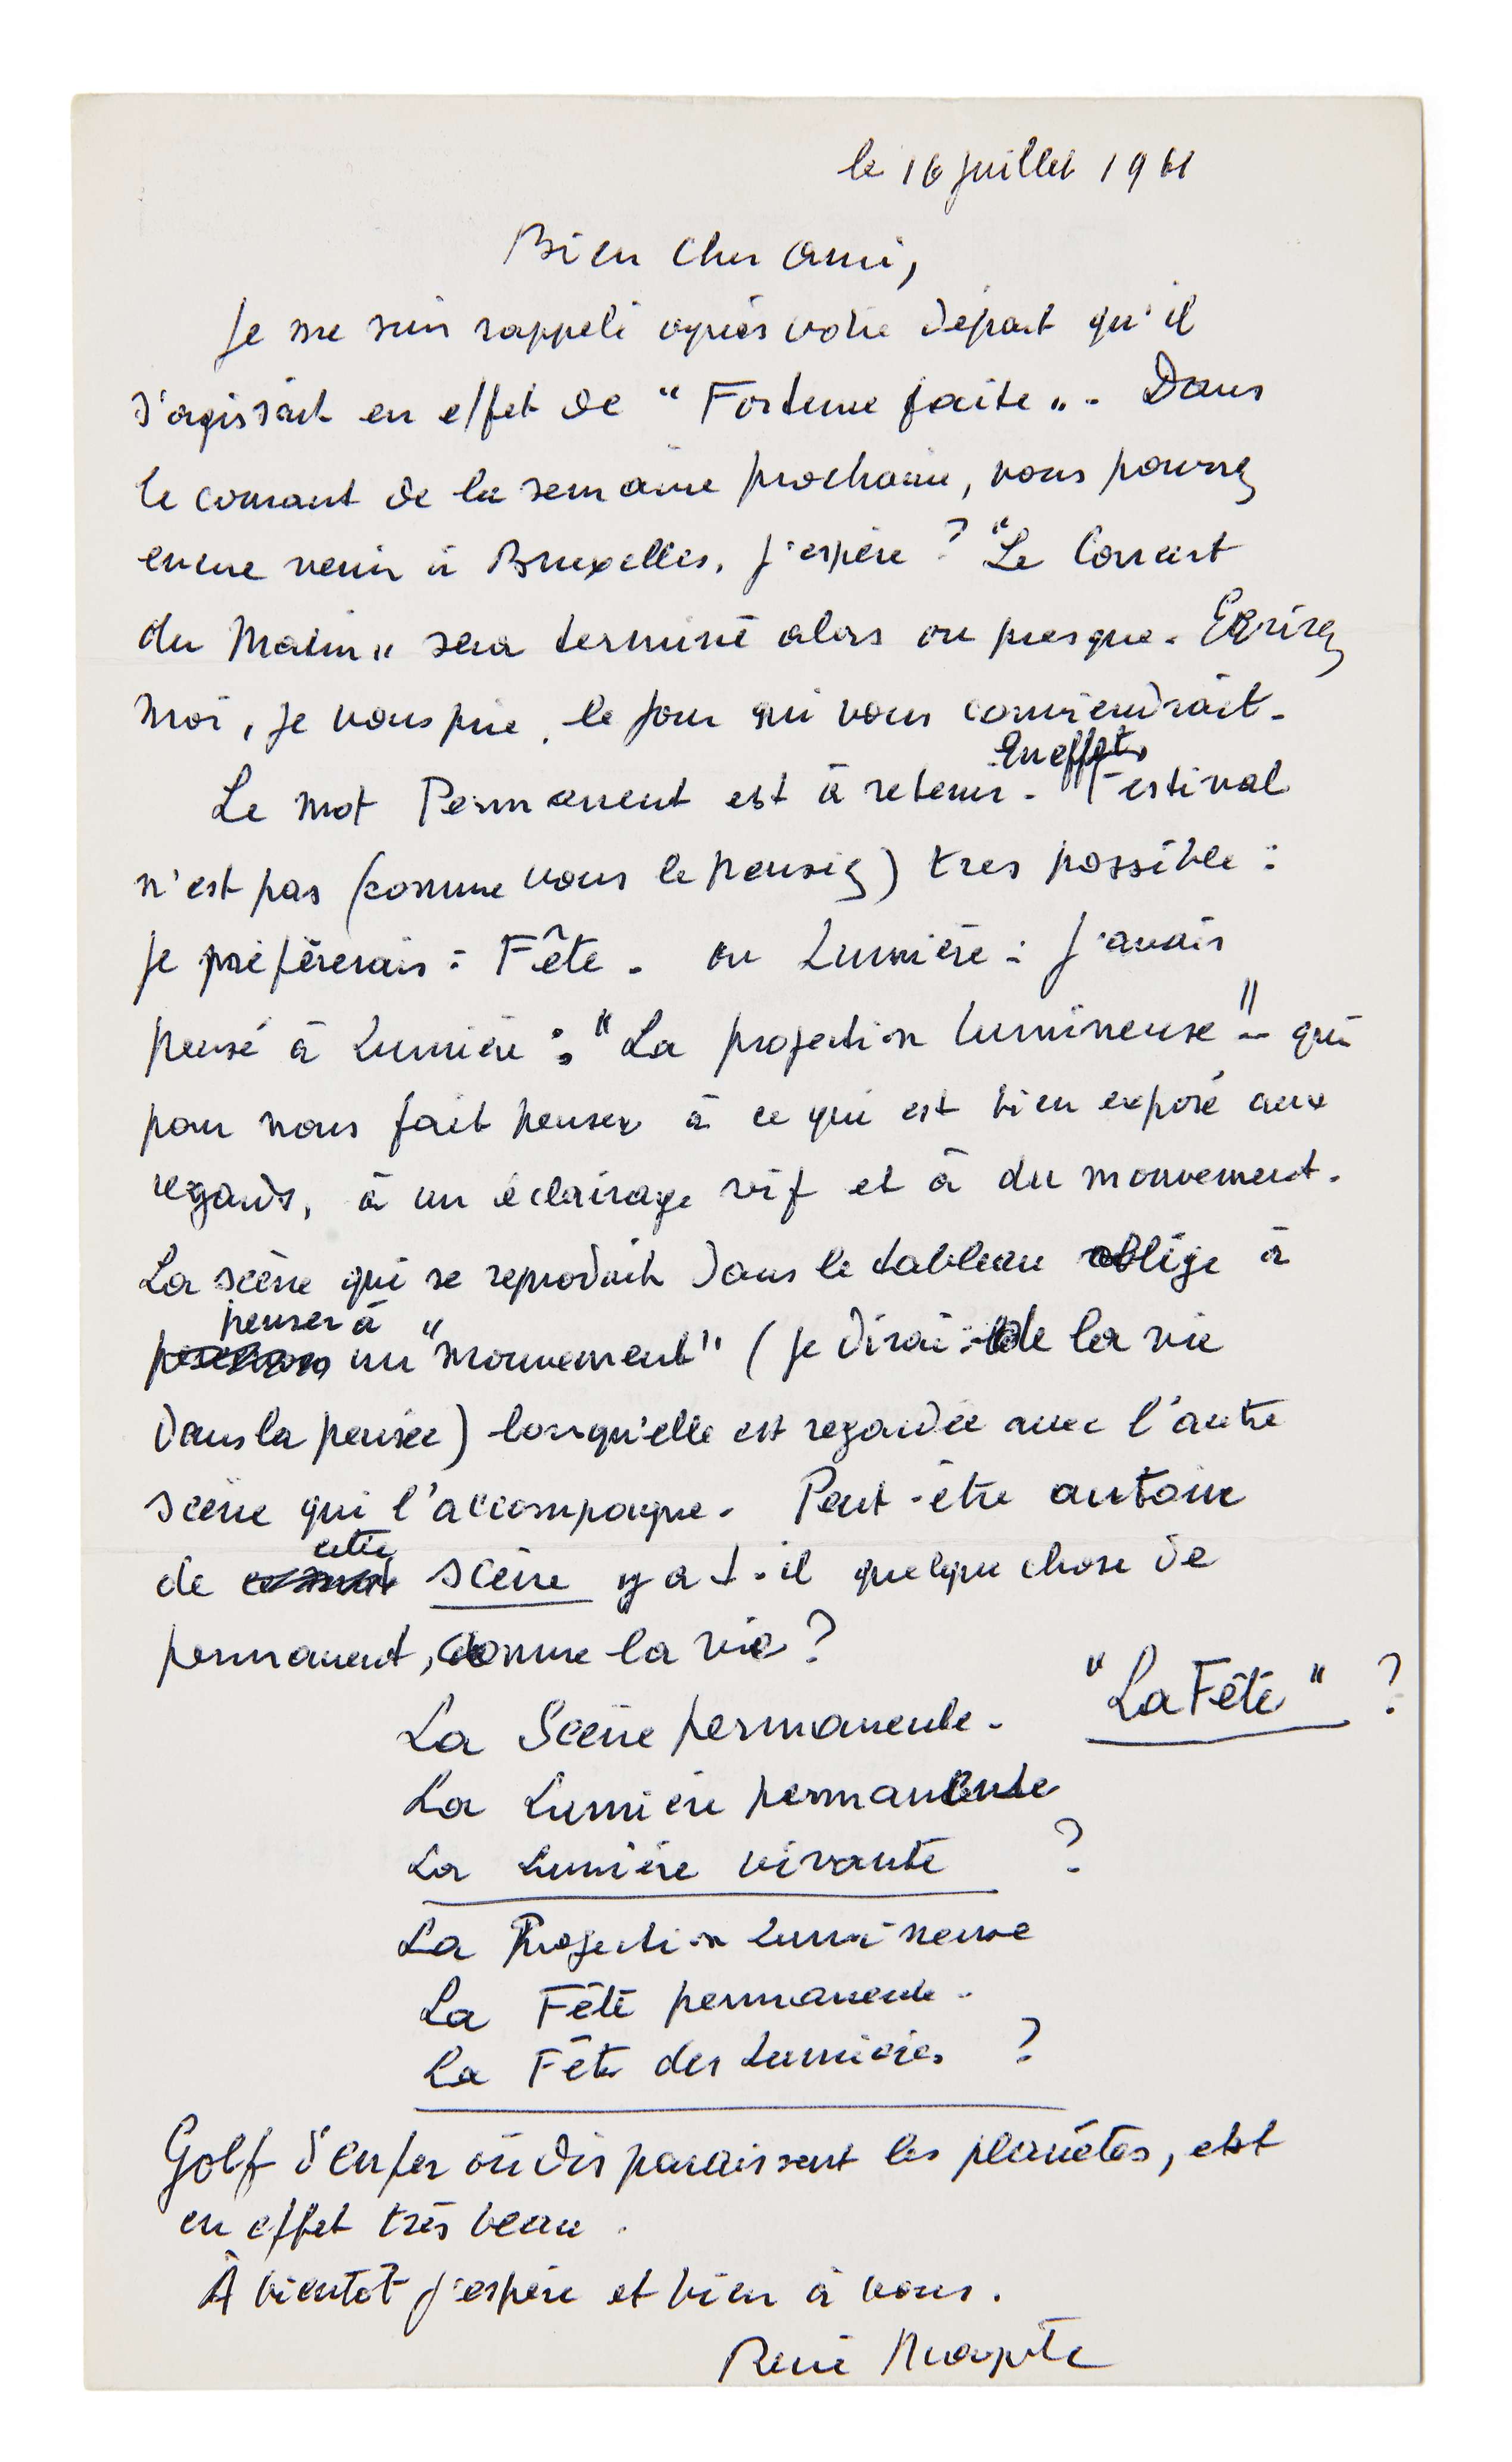 le 16 juillet 1961
Bien cher ami,
Je me suis rappelé après votre départ qu'il
s'agissait en effet de "Fortune faite". Dans
le courant de la semaine prochaine, vous pourrez
encore venir à Bruxelles, j'espère ? "Le Concert
du Matin" sera terminé alors ou presque. Ecrivez
moi, je vous prie, le jour qui vous conviendrait.
Le mot Permanent est à retenir. En effet, Festival
n'est pas (comme vous le pensiez) très possible :
je préfèrerais : Fête. ou Lumière : J'avais
pensé à Lumière : "La projection lumineuse" – qui
pour nous fait penser à ce qui est bien exposé aux
regards, à un éclairage vif et à du mouvement.
La scène qui se reproduit dans le tableau oblige à
penser à un "mouvement" (je dirai : de la vie
dans la pensée) lorsqu'elle est regardée avec l'autre
scène qui l'accompagne. Peut-être autour
de cette scène y a t-il quelque chose de
permanent, comme la vie ?
La Scène permanente. "La Fête" ?
La Lumière permanente
La Lumière vivante ?
La Projection lumineuse
La Fête permanente.
La Fête des Lumières ?
Golf d'enfer où disparaissent les planètes, est
en effet très beau.
À bientôt j'espère et bien à vous.
René Magritte